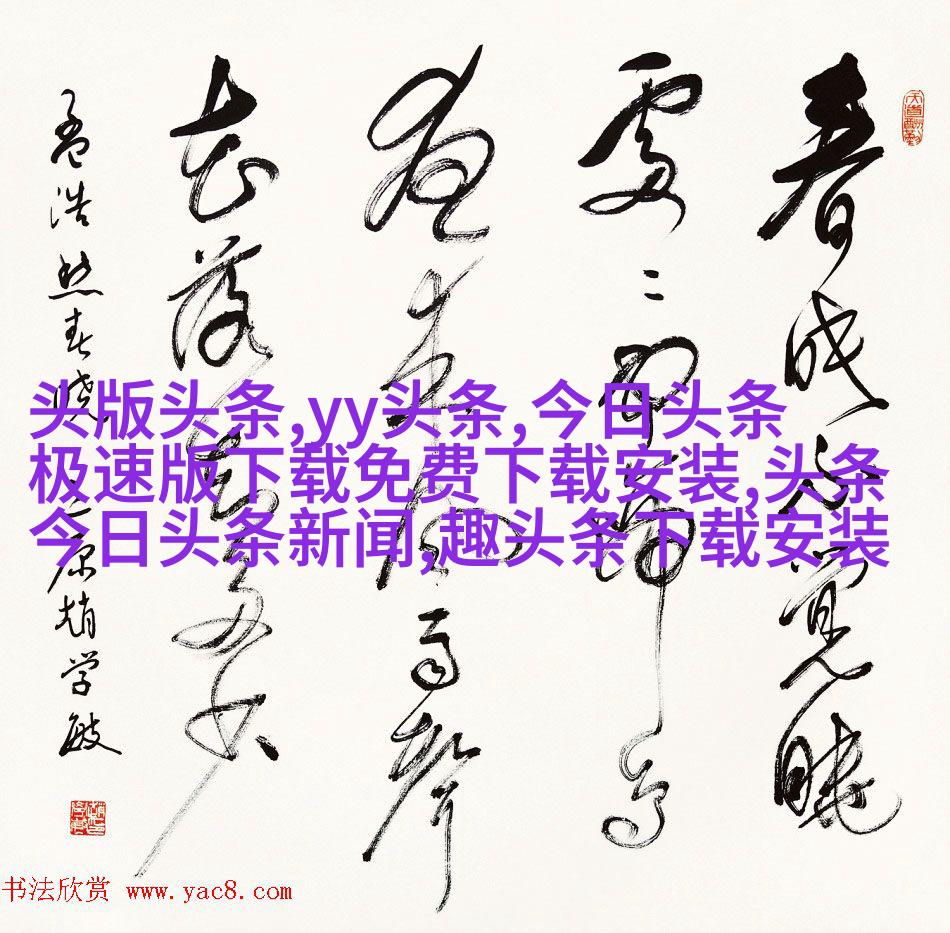 春眠不覺曉
處〻聞啼鳥
夜来風雨聲
花落知多少
孟浩然春曉
原趙学敏
天道酬勤
头版头条,yy头条,今日头条
极速版下载免费下载安装,头条
今日头条新闻,趣头条下载安装
书法欣赏 www.yac8.com